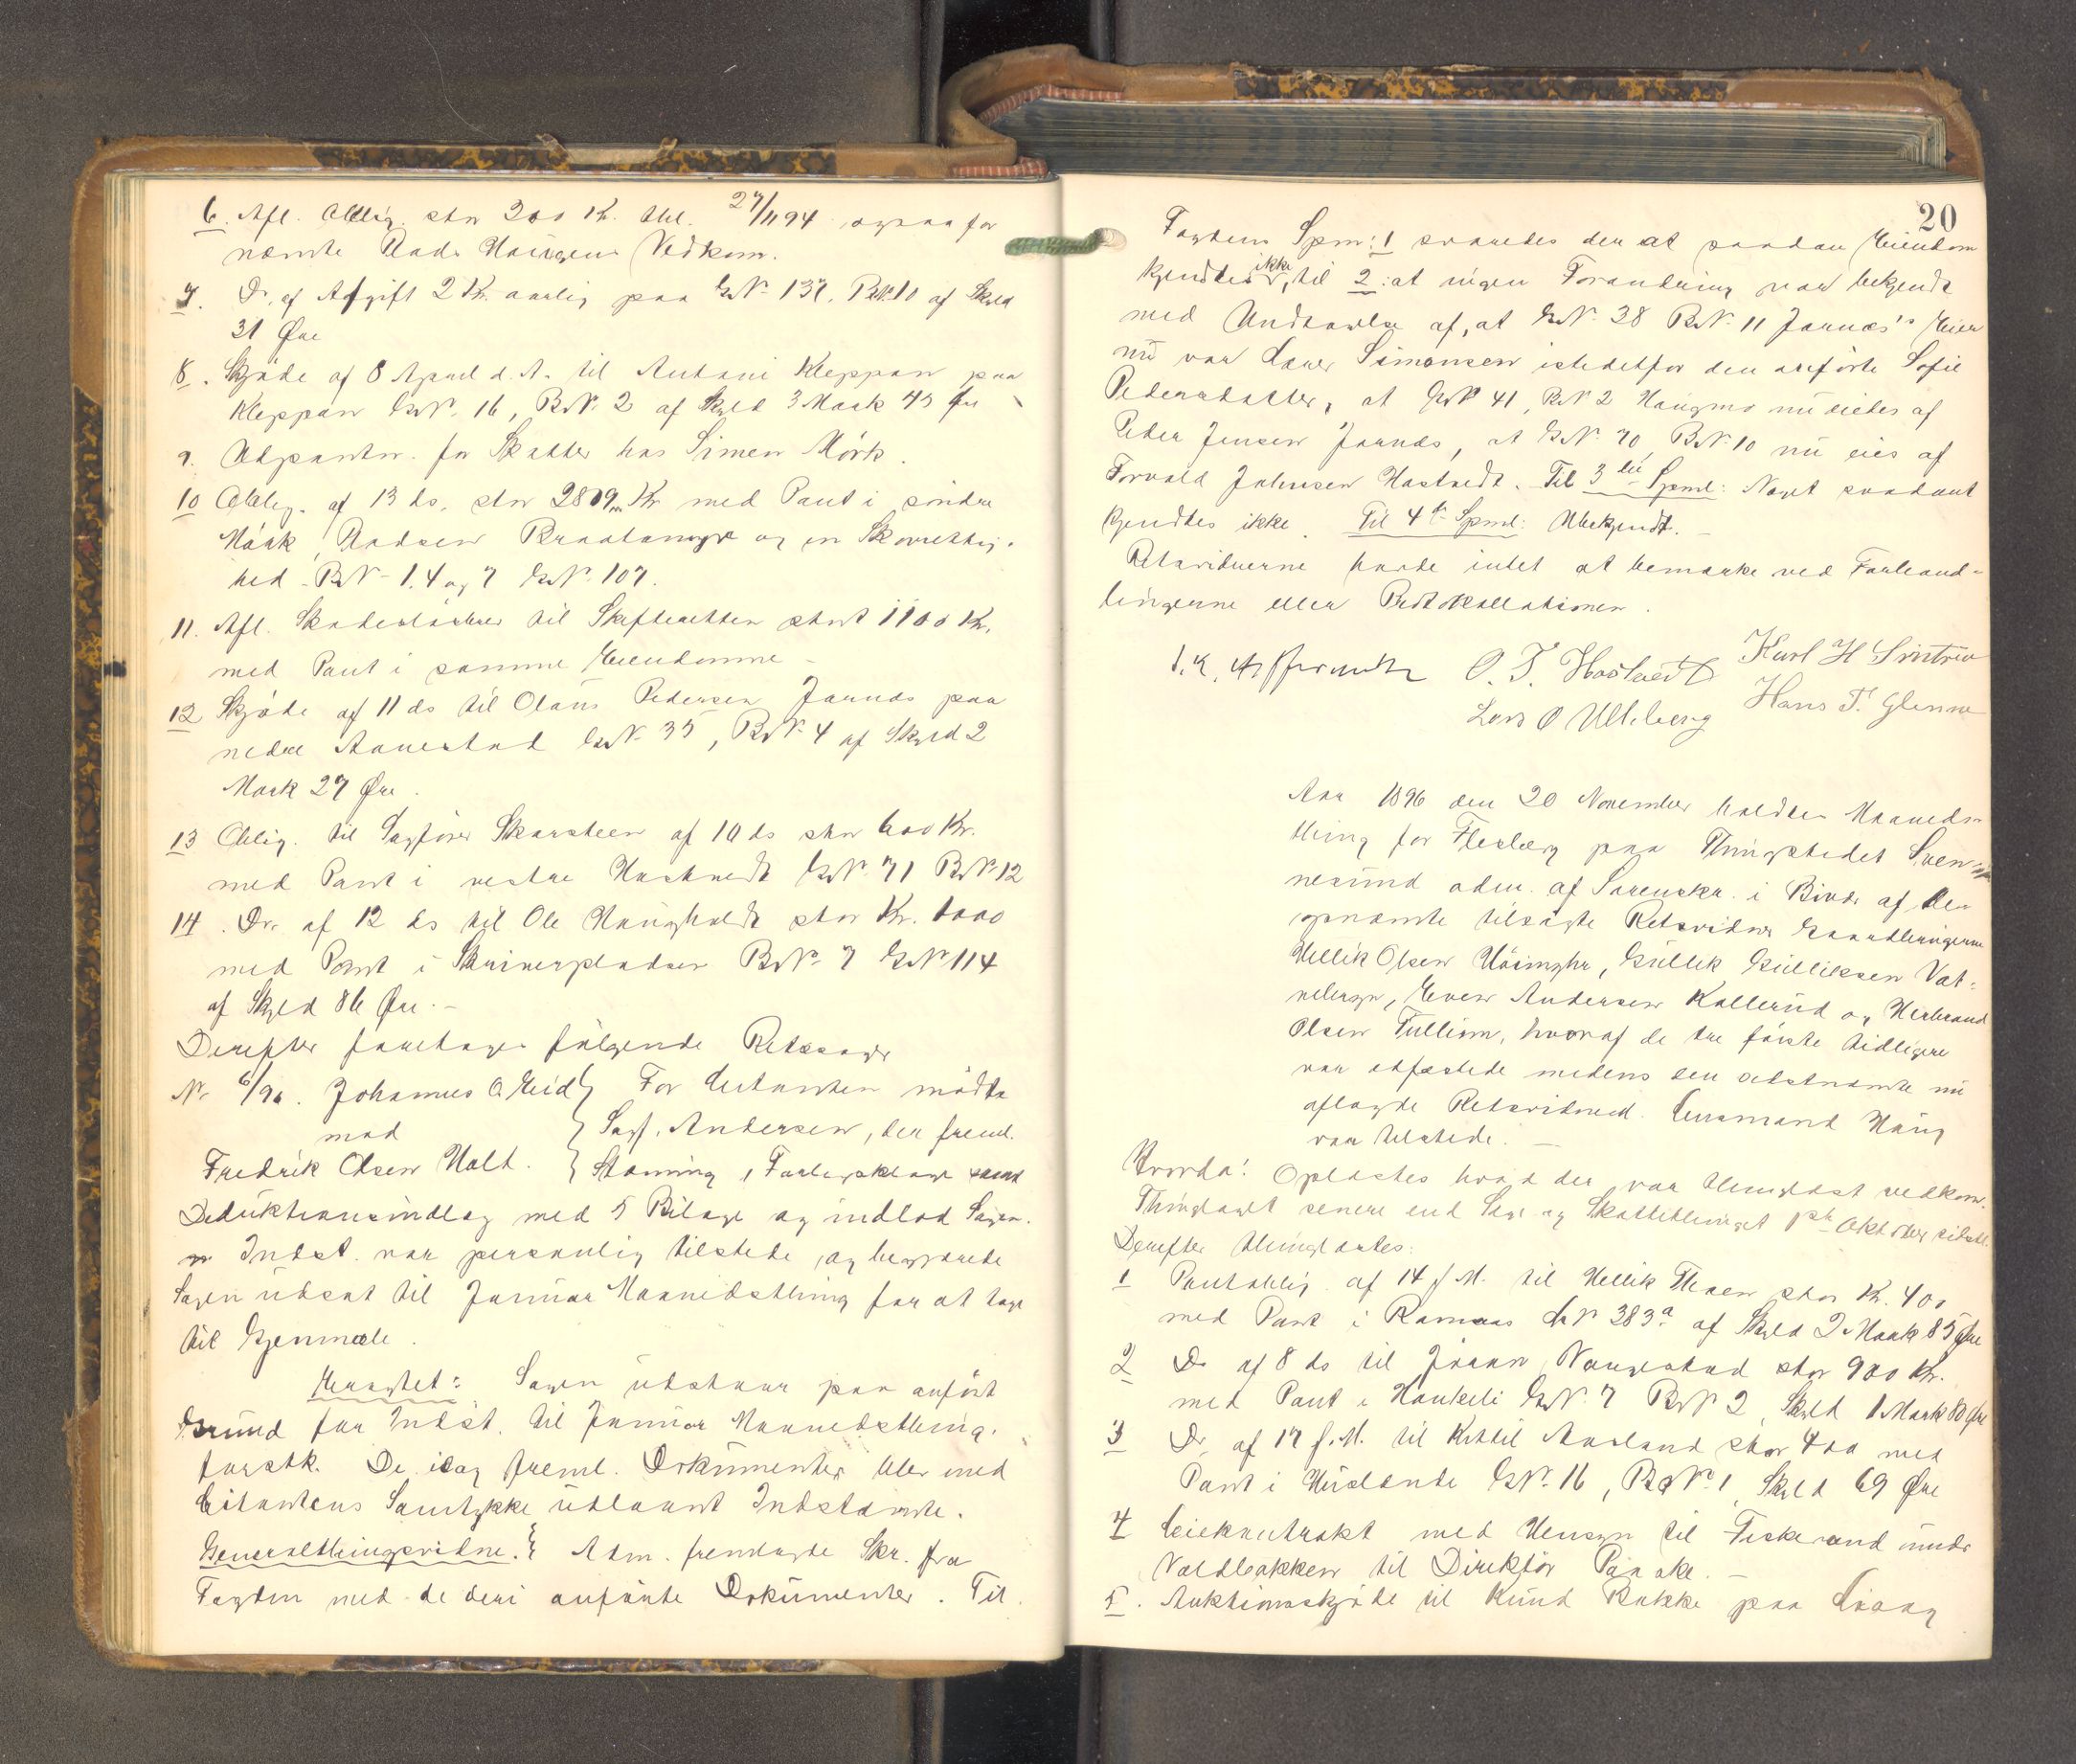 6. Afl. Oblig. stor 200 Kr. thl. 27/11 94, ogsaa for
nævnte Aads Haugens Vedkom.
7. Do. af Afgift 2 Kr. aarlig paa G.N. 137, B.N. 10 af Skyld
31 Øre
8. Skjøde af 8 April d. A. til Antoni Kleppan paa
Kleppan G.N. 16, B.N. 2 af Skyld 3 Mark 43 Øre
9. Udpantn. for Skatter hos Simen Mørk.
10 Oblig. af 13 ds. stor 2809 Kr med Pant i søndre
Mørk, Aadsen Braatamyr og en Skovrettig-
hed B.N. 1, 4 og 7 G.N. 107.
11. Afl. Skadesløsbrev til Skifteretten stort 1100 Kr.
med Pant i samme Eiendomme
12 Skjøde af 11 ds til Olaus Pedersen Jarnæs paa
nedre Aanestad G.N. 35, B.N. 4 af Skyld 2
Mark 27 Øre.
13 Oblig. til Sagfører Skarsteen af 10 ds stor 600 Kr.
med Pant i vestre Hostvedt G.N. 71 B.N. 12
14. Do. af 12 ds til Ole Haugholdt stor Kr. 1000
med Pant i Skriverpladsen B.N. 7 G.N. 114
af Skyld 86 Øre. –
Derefter foretages følgende Retssager
N. 6/96. Johannes O. Eid } For Citanten mødte
mod } Sagf. Andersen, der freml.
Fredrik Olsen Holt. } Stævning, Forligsklage samt
Deduktionsindlæg med 5 Bilage og indlod Sagen.
Indst. var personlig tilstede, og begjærede
Sagen udsat til Januar Maanedsthing for at tage
til Gjenmæle.
Eragtet: Sagen udstaar paa anført
Grund for Indst. til Januar Maanedsthing.
førstk. De idag freml. Dokumenter blev med
Citantens Samtykke udlaant Indstævnte.
Generalthingsvidne. } Adm. fremlagde Skr. fra
Fogden med de deri anførte Dokumenter. Til
20
Fogdens Spm: 1 svaredes der at saadan Eiendom
kjendtes ikke, til 2: at ingen Forandring var bekjendt
med Undtagelse af, at G.N. 38 B.N. 11 Jarnæs's Eier
nu var Laver Simensen istedetfor den anførte Sofie
Pedersdatter, at G.N. 41, B.N. 2 Haugmo nu eiedes af
Peder Jensen Jarnæs, at G.N. 70 B.N. 10 nu eies af
Torvald Johnsen Hostvedt. Til 3die Spml: Noget saadant
kjendtes ikke. Til 4de Spml: Ubekjendt. –
Retsvidnerne havde intet at bemærke ved Forhand-
lingerne eller Protokollationen.
O. T. Hostvedt Karl H
Lars O Ulleberg Hans T. Glenne
Aar 1896 den 20 November holdtes Maaneds-
thing for Flesberg paa Thingstedet Sven-
nesund adm. af Sorenskr. i Bivær af de
opnævnte tilsagte Retsvidner Gaardbrugerne
Hellik Olsen, Gullik Gulliksen Vat-
nebryn, Even Andersen Kollerud og Herbrand
Olsen Tullien, hvoraf de tre første tidligere
var edfæstede medens den sidstnævnte nu
aflagde Retsvidneed. Lensmand Haug
var tilstede. –
Hvorda: Oplæstes hvad der var thinglæst vedkom.
Thinglaget senere end Sage og Skattethinget 1ste Oktober sidstl.
Derefter thinglæstes:
1 Pantoblig. af 14 f. M. til Hellik Thoen stor Kr. 400
med Pant i Ramaas L.N. 383a af Skyld 2 Mark 85 Øre
2 Do af 8 ds til Jøran Naugestad stor 900 Kr.
med Pant i Haukeli G.N. 7 B.N. 2, Skyld 1 Mark 80 Øre
3 Do. af 17 f. M. til Kittil Aasland stor 400 med
Pant i G.N. 16, B.N. 1 Skyld 69 Øre
4 Leiekontrakt med Hensyn til Fiskevand under
Voldbakken til Direktør Paaske. –
5. Auktionsskjøde til Knud Bakke paa Liaag